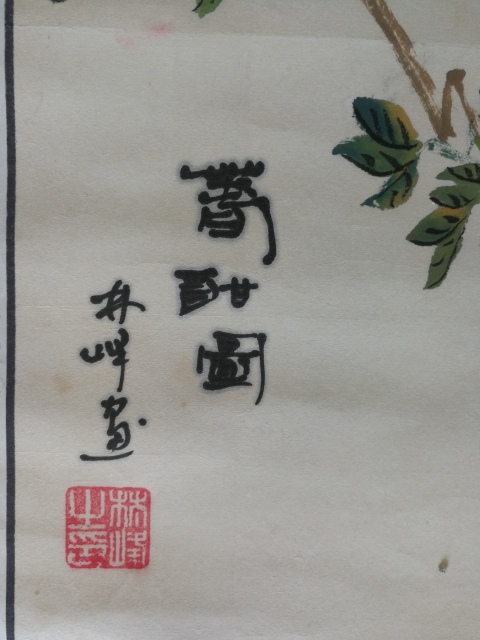 春酣圖
林峰畫
林峰之印